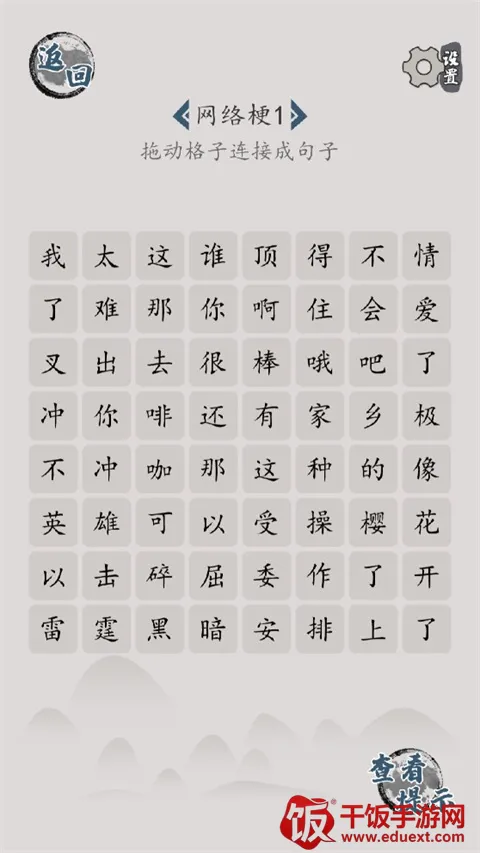 返回
设置
网络梗1
拖动格子连接成句子
我太这谁顶得不情
了难那你啊住会爱
叉出去很棒哦吧了
冲你啡还有家乡极
不冲咖那这种的像
英雄可以受操樱花
以击碎屈委作了开
雷霆黑暗安排上了
查看
提示
饭® 干饭手游网
www.eduext.com